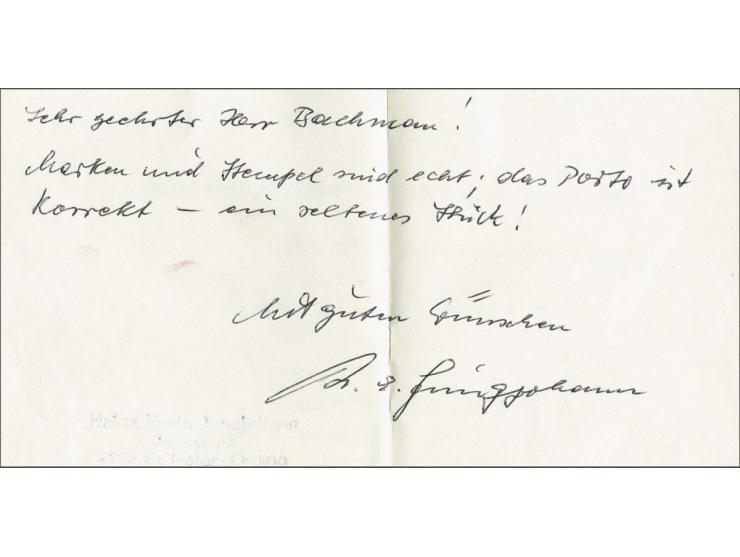 Sehr geehrter Herr Bachman!
Marken und Stempel sind echt; das Porto ist
Korrekt – ein seltenes Stück!
Mit guten Wünschen
E. Jungjohann
Jungjohann
2252 St. Peter-Ording